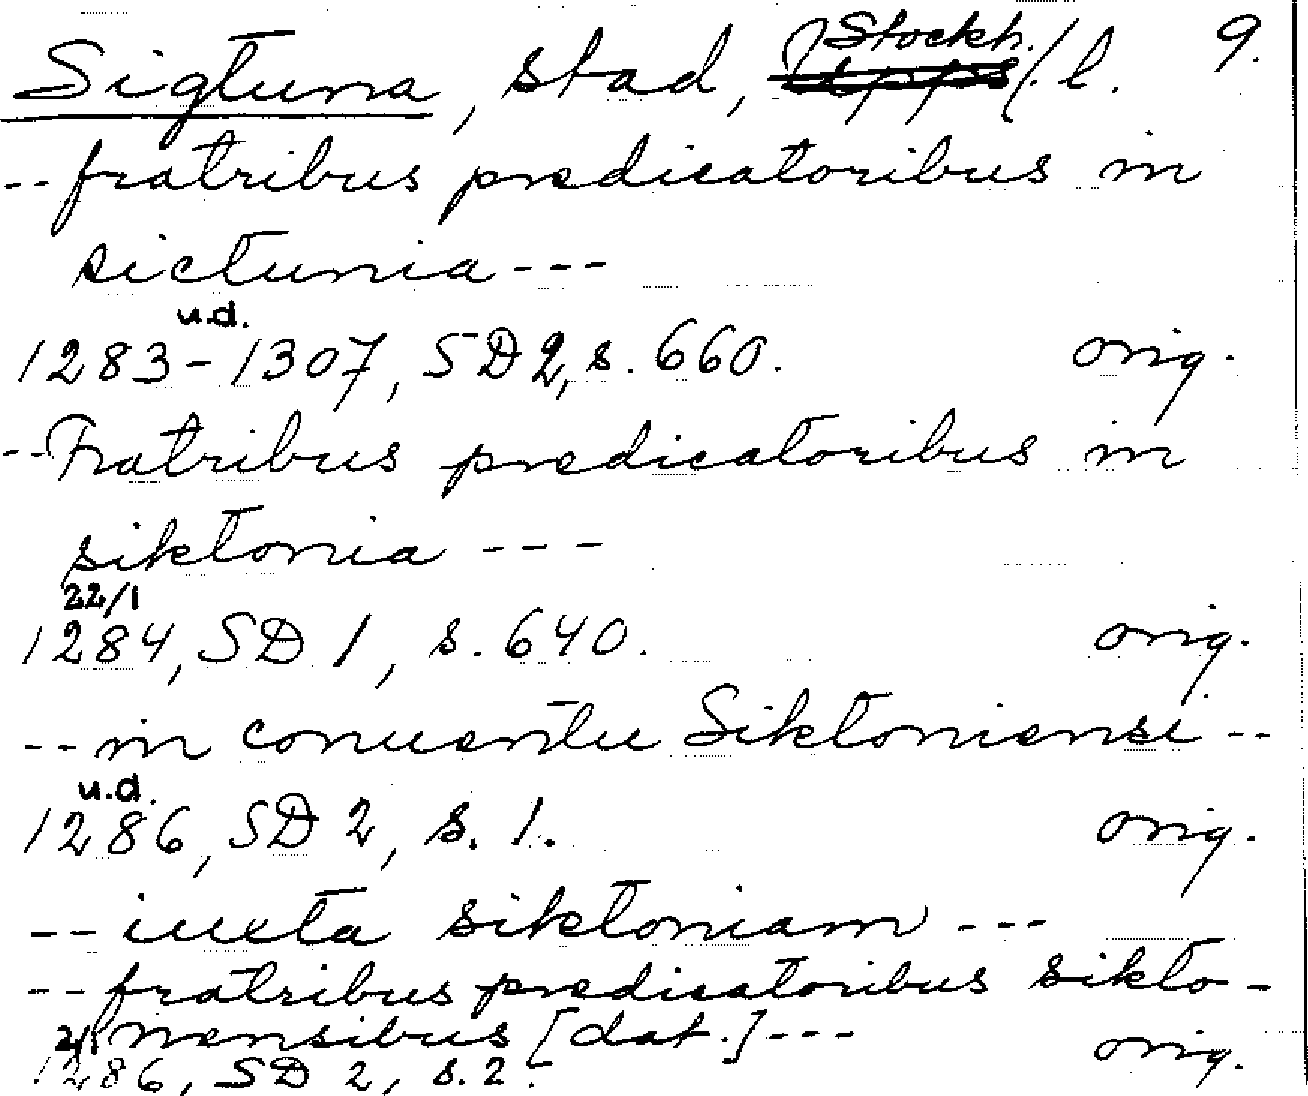 Sigtuna, stad, Stockh./Upps. l. 9.
-- fratribus predicatoribus in
sictunia ---
u.d.
1283-1307, SD 2, s. 660. orig.
-- Fratribus predicatoribus in
siktonia ---
22/1
1284, SD 1, s. 640. orig.
-- in conuentu Siktoniensi --
u.d.
1286, SD 2, s. 1. orig.
-- iuxta siktoniam ---
-- fratribus predicatoribus sikto-
nensibus [dat.] ---
1286, SD 2, s. 2. orig.